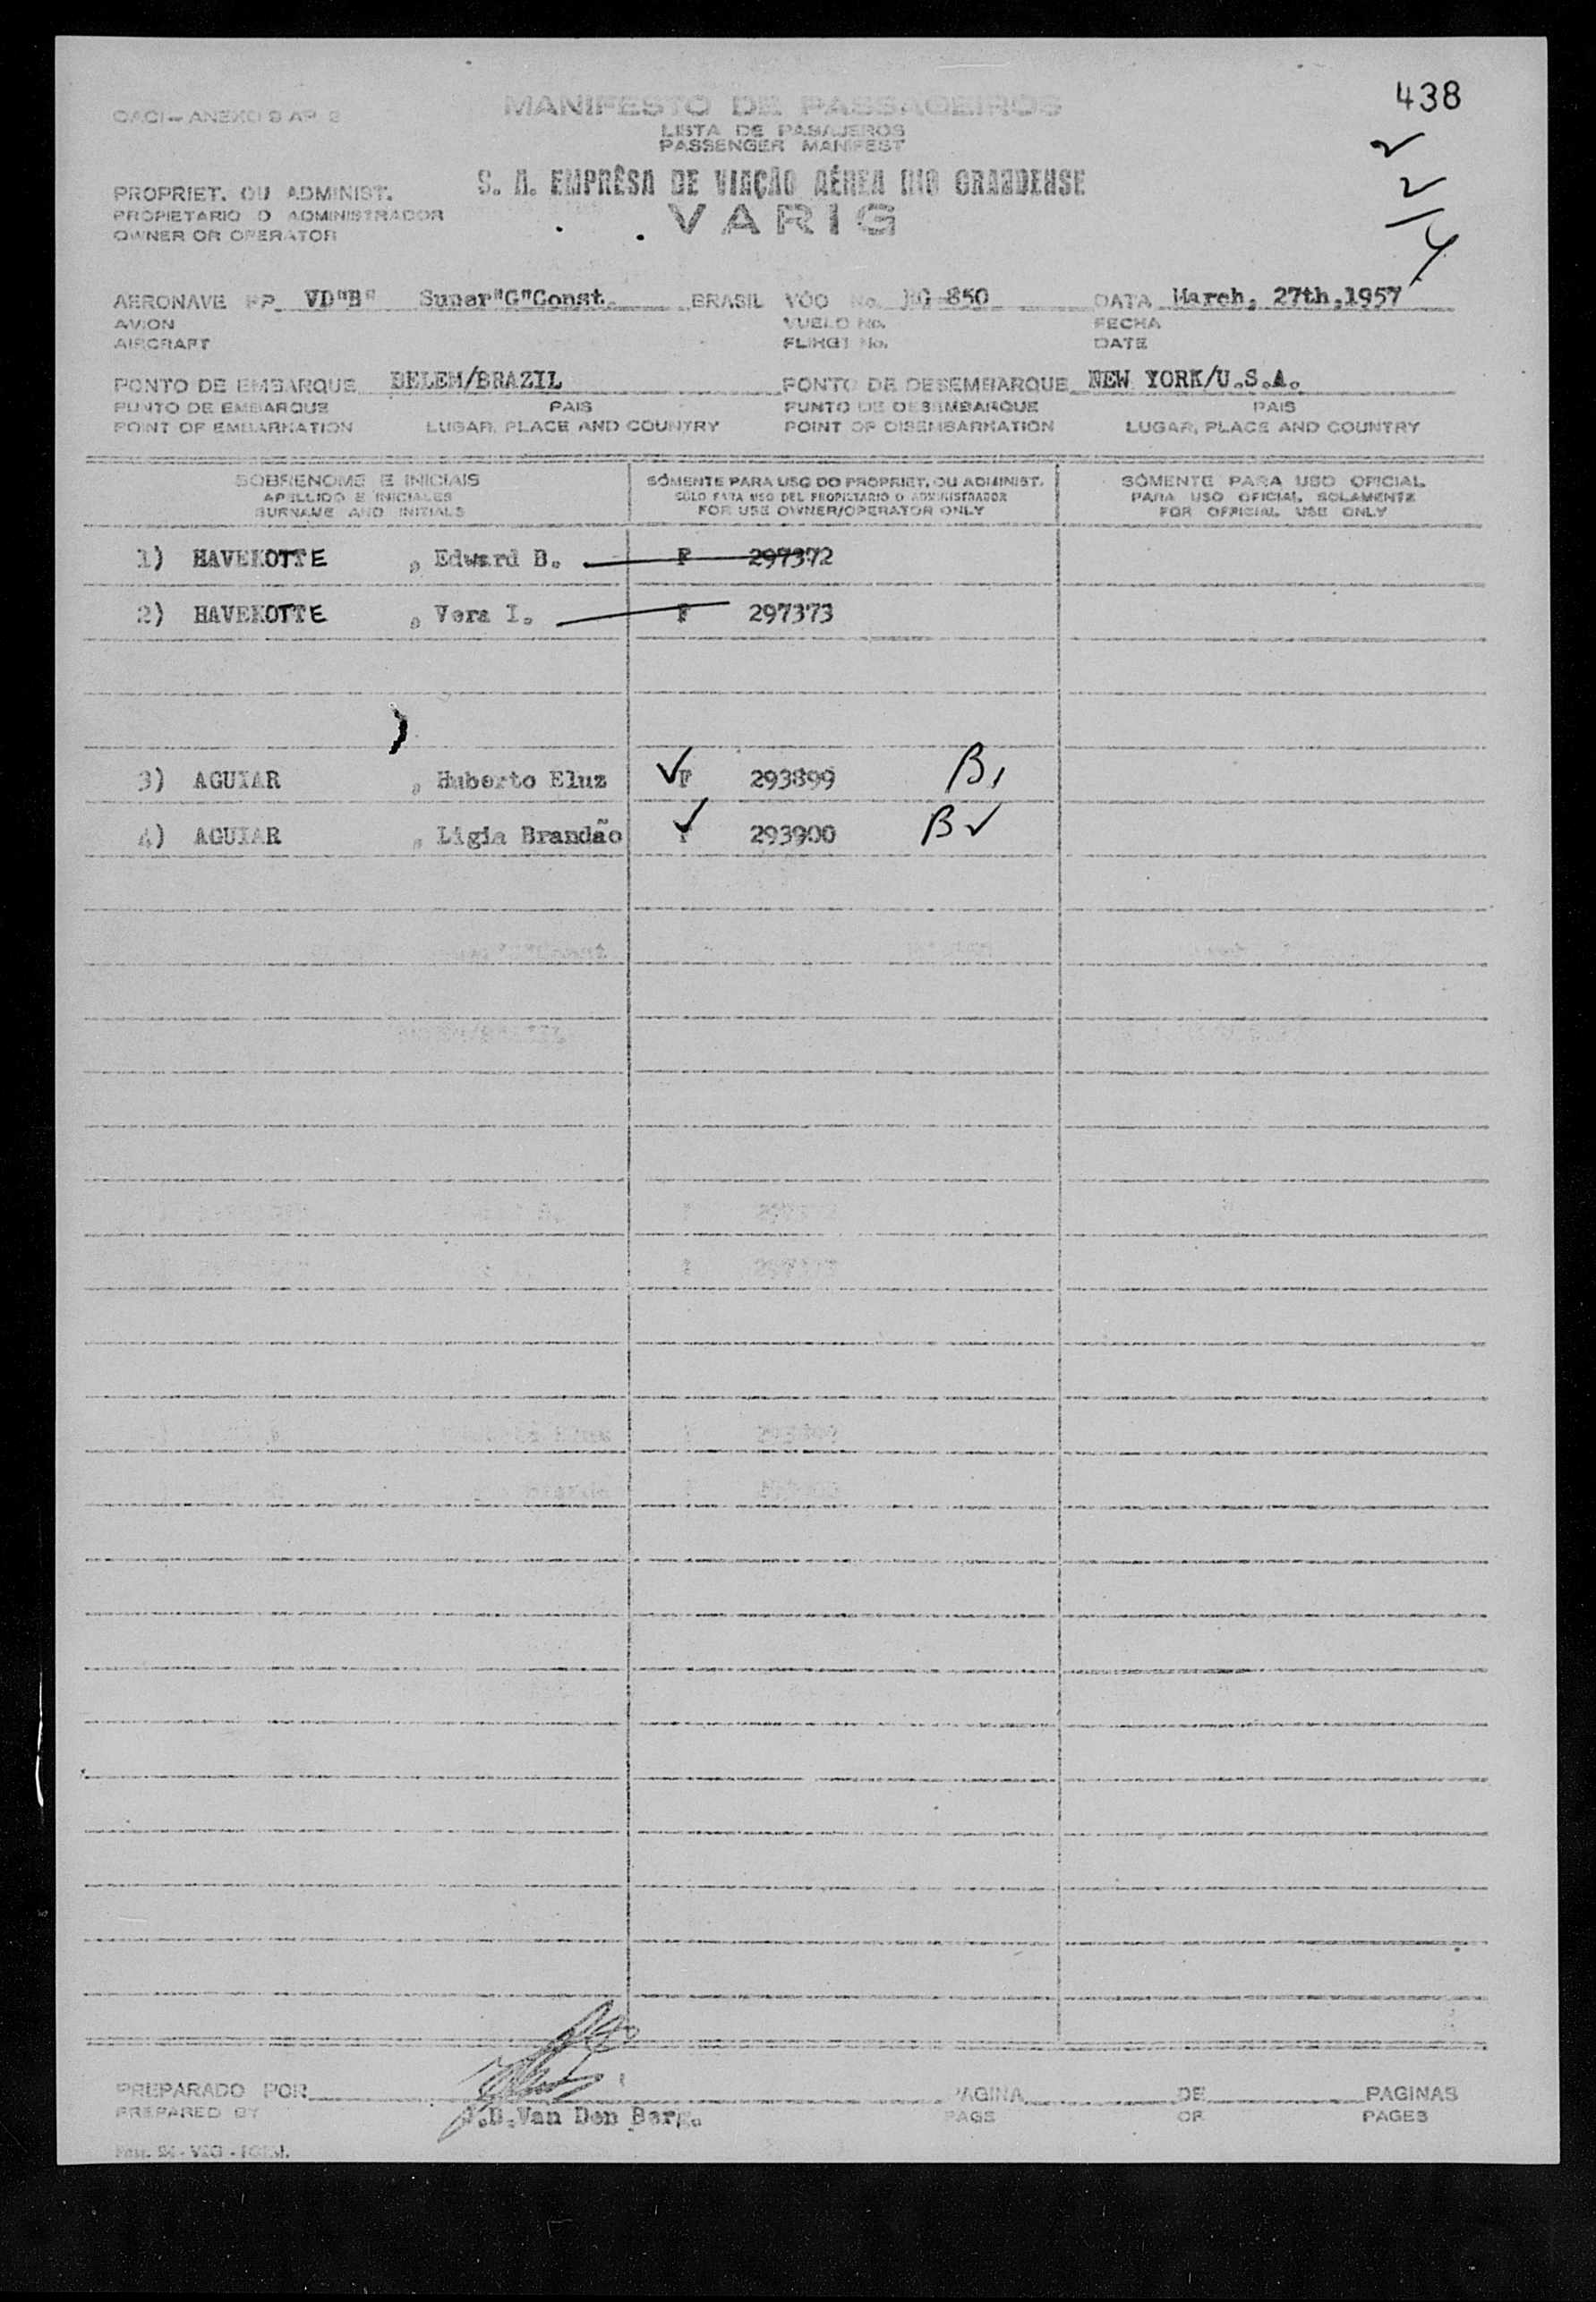 438
OACI - ANEXO 9 AP 2
MANIFESTO DE PASSAGEIROS
LISTA DE PASAJEROS
PASSENGER MANIFEST
2
2
4
PROPRIET. OU ADMINIST.
PROPIETARIO O ADMINISTRADOR
OWNER OR OPERATOR
S. A. EMPRÊSA DE VIAÇÃO AÉREA RIO GRANDENSE
VARIG
AERONAVE PP VD"B" Super"G"Const. BRASIL VÔO No. RG 850 DATA March, 27th,1957
AVION VUELO No. FECHA
AIRCRAFT FLIHGT No. DATE
PONTO DE EMBARQUE BELEM/BRAZIL PONTO DE DESEMBARQUE NEW YORK/U.S.A.
PUNTO DE EMBARQUE PAIS PUNTO DE DESEMBARQUE PAIS
POINT OF EMBARKATION LUGAR, PLACE AND COUNTRY POINT OF DISEMBARKATION LUGAR, PLACE AND COUNTRY
SOBRENOME E INICIAIS SÓMENTE PARA USO DO PROPRIET. OU ADMINIST. SÓMENTE PARA USO OFICIAL
APELLIDO E INICIALES SÓLO PARA USO DEL PROPIETARIO O ADMINISTRADOR PARA USO OFICIAL SOLAMENTE
SURNAME AND INITIALS FOR USE OWNER/OPERATOR ONLY FOR OFFICIAL USE ONLY
1) HAVEKOTTE , Edward B. F 297372
2) HAVEKOTTE , Vera I. F 297373
3) AGUIAR , Huberto Eluz F 293899 B,
4) AGUIAR , Ligia Brandão F 293900 B
PREPARADO POR PAGINA DE PAGINAS
PREPARED BY J.D.Van Den Berg. PAGE OF PAGES